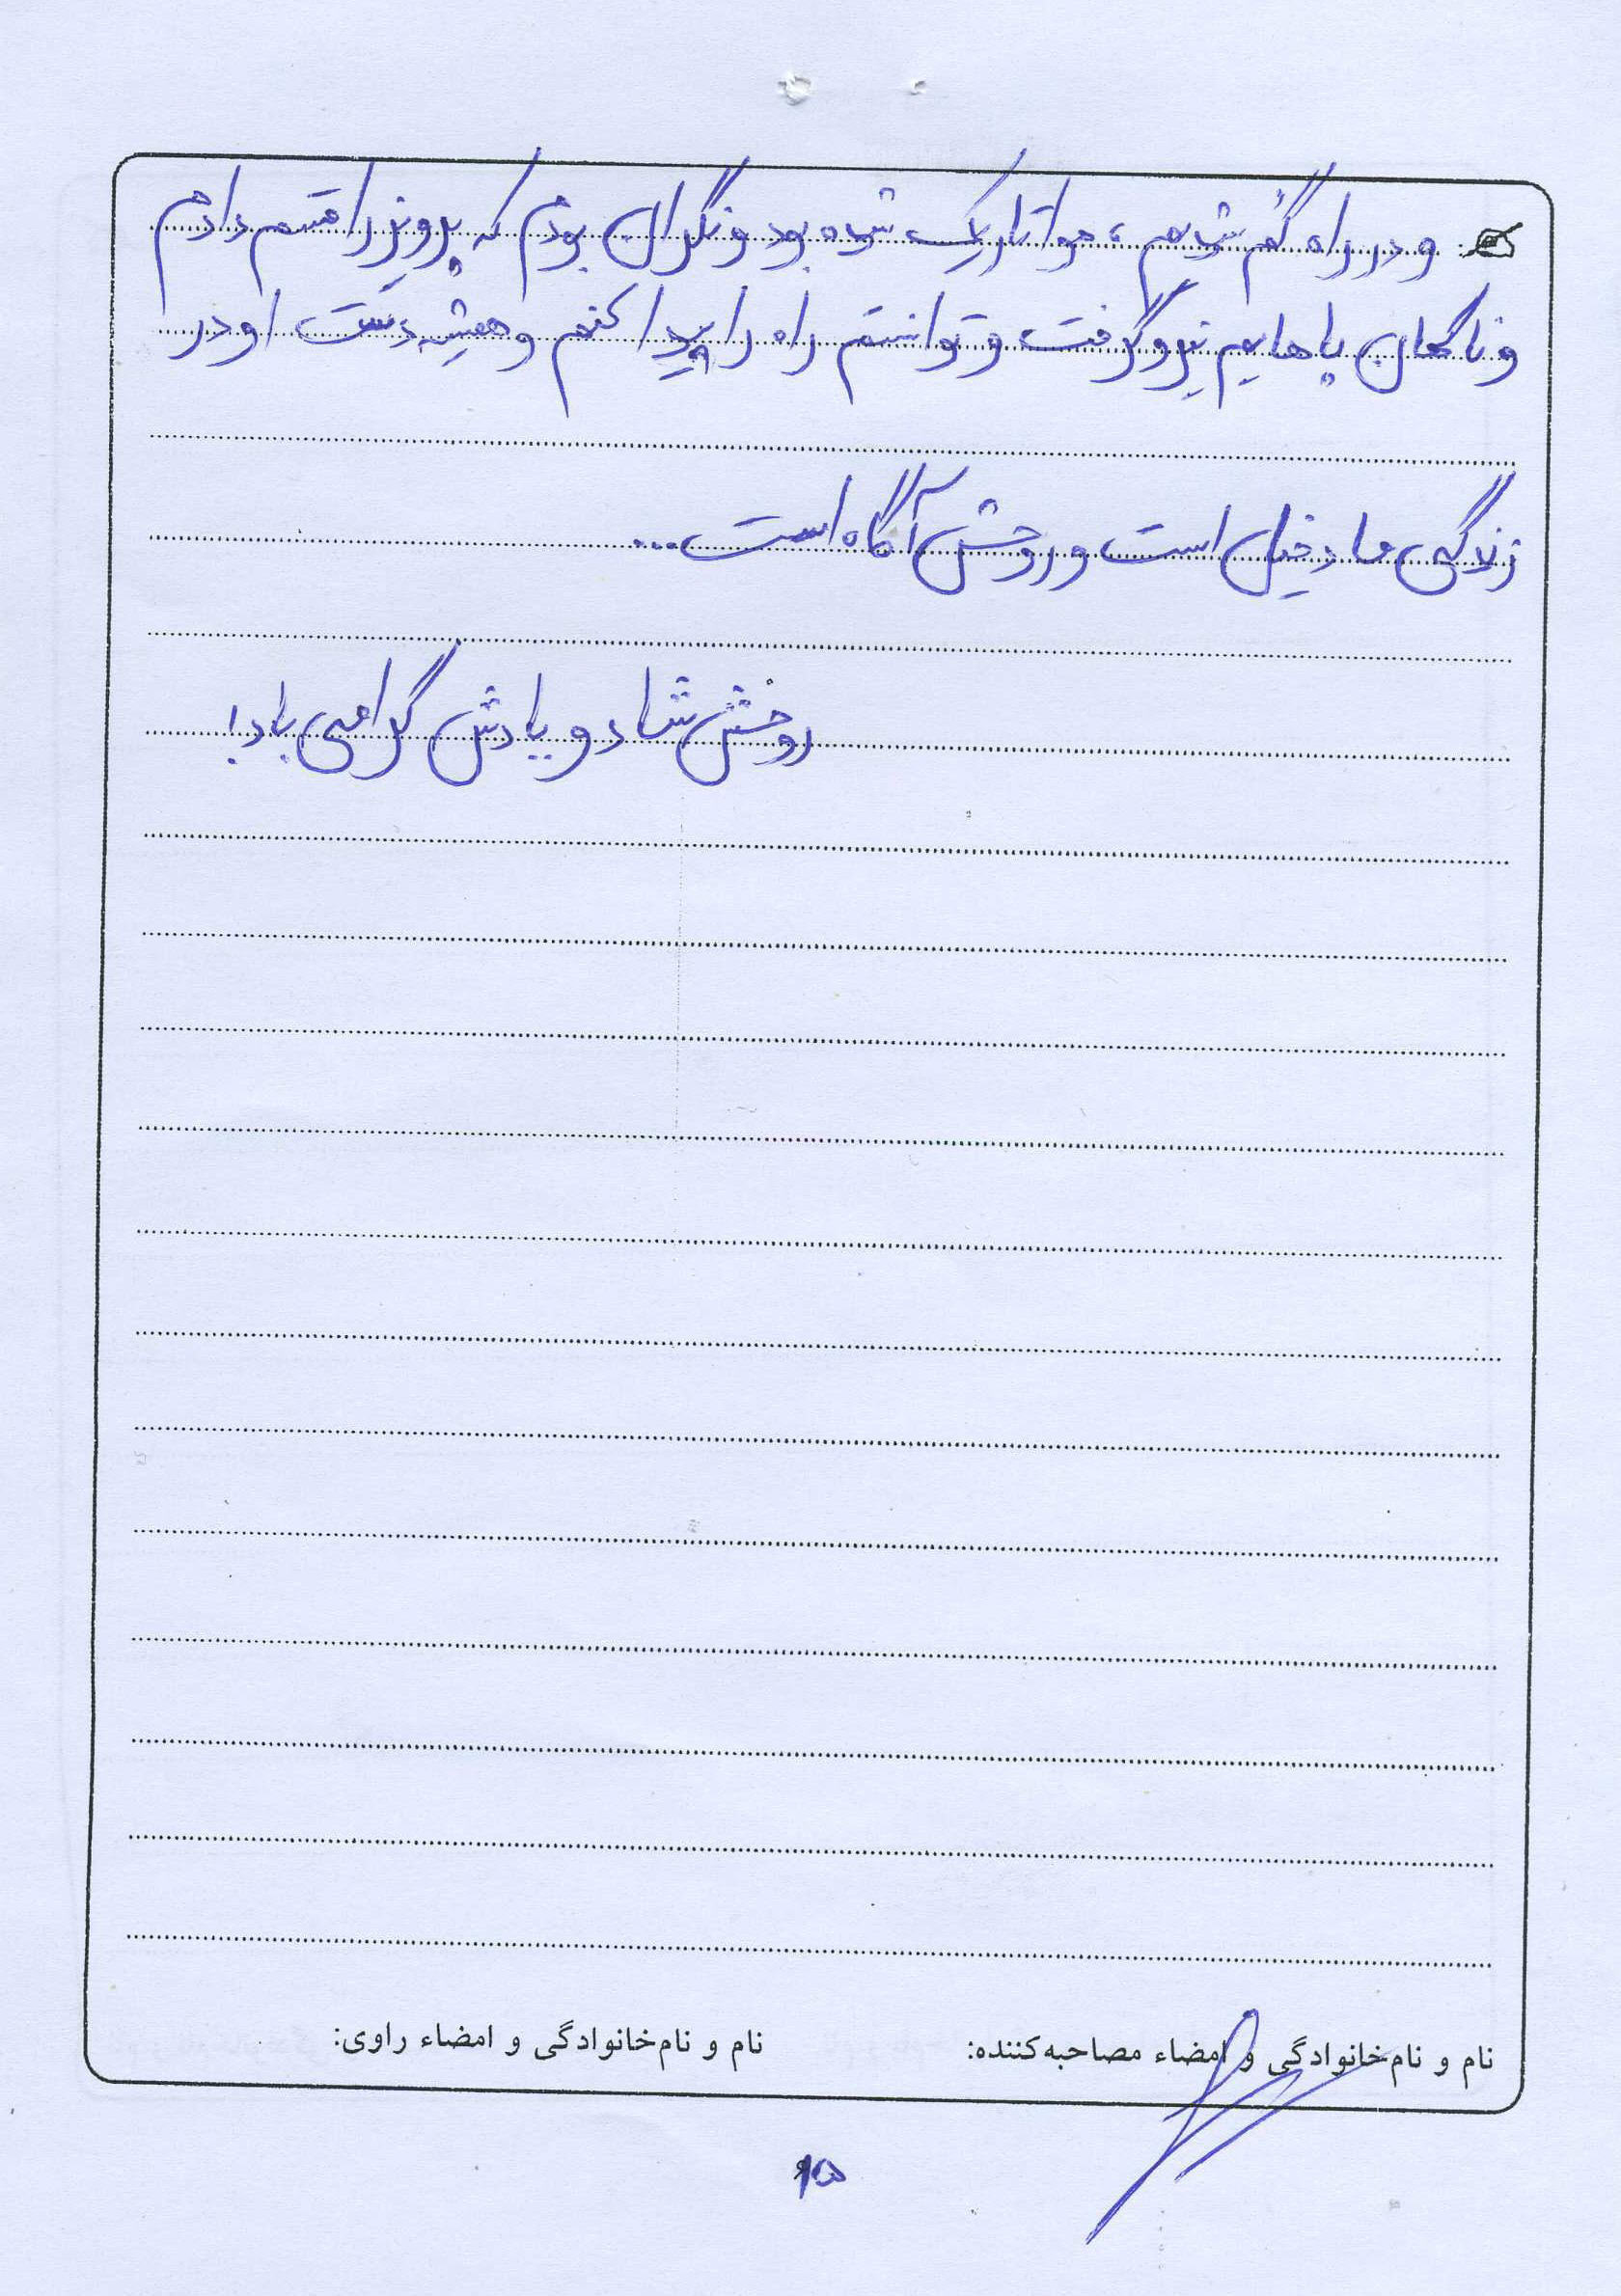 و در راه گم شدم، هوا تاریک شده بود و نگران بودم که پرویز را قسم دادم
و ناگهان پاهایم نیرو گرفت و توانستم راه را پیدا کنم و همیشه دست او در
زندگی ما دخیل است و روحش آگاه است...
روحش شاد و یادش گرامی باد!
نام و نام‌خانوادگی و امضاء مصاحبه‌کننده:
نام و نام‌خانوادگی و امضاء راوی:
۱۵